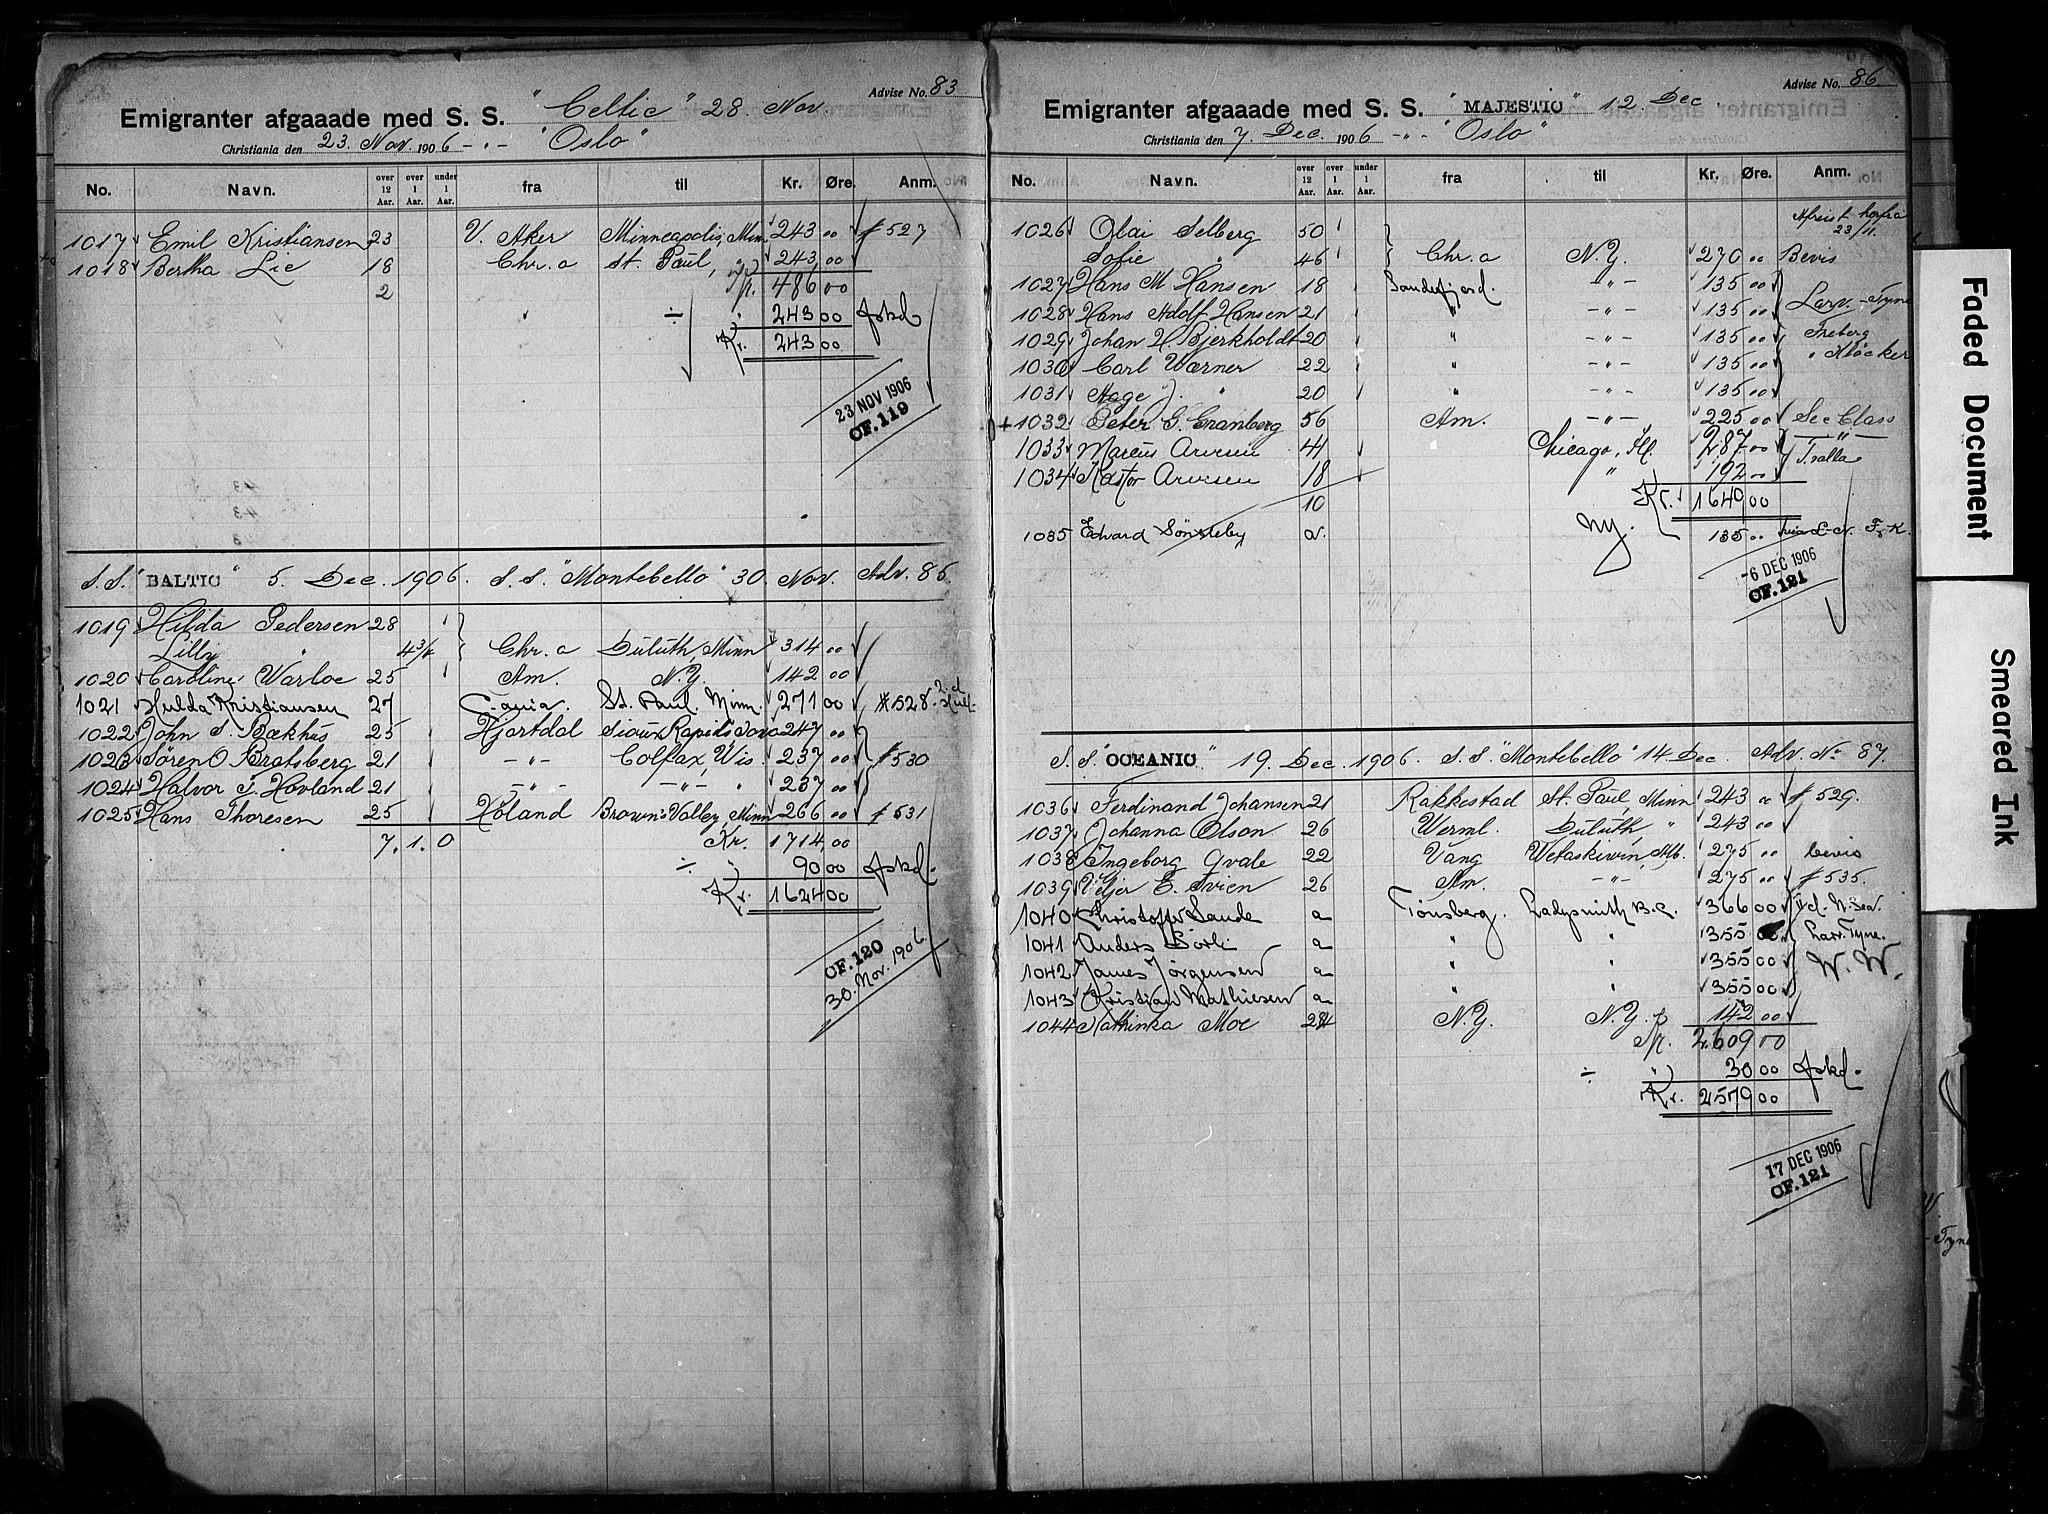 Advise No. 83
Emigranter afgaaade med S. S. "Celtic" 28 Nov.
Christiania den 23. Nov. 1906 -"- "Oslo"
No. Navn. over 12 Aar. over 1 Aar. under 1 Aar. fra til Kr. Øre. Anm.
1017 Emil Kristiansen 23 V. Aker Minneapolis, Minn 243 00 # 527
1018 Bertha Lie 18 Chr.a St. Paul, " 243,00
2 Tpr. 486 00
÷ " 243 00 Afskd.
Kr. 243 00
23 NOV 1906
CF. 119
S. S. "BALTIC" 5. Dec. 1906. S. S. "Montebello" 30 Nov. Adv. 85
1019 Hilda Pedersen 28
Lilly " 4 3/4 Chr.a Duluth Minn 314 00
1020 Caroline Warloe 25 Am. N.Y. 142 00
1021 Hulda Kristiansen 27 C-ania. St. Paul. Minn. 271 00 # 528
1022 John S. Bækhus 25 Hjartdal Sioux Rapids Iowa 247 00
1023 Søren O Bratsberg 21 -"- Colfax, Wis 237 00 # 530
1024 Halvor T. Hovland 21 -"- -"- " 237 00
1025 Hans Thoresen 25 Høland Browns Valley, Minn 266 00 # 531
7. 1. 0 Kr. 1714,00
÷ " 90 00 Afskd.
Kr. 1624 00
CF. 120
30. Nov. 1906.
Advise No. 86.
Emigranter afgaaade med S. S. "MAJESTIC" 12 Dec
Christiania den 7. Dec. 1906 -"- "Oslo"
No. Navn. over 12 Aar. over 1 Aar. under 1 Aar. fra til Kr. Øre. Anm.
Afreist herfra 23/11.
1026 Olai Selberg 50
Sofie " 46 Chr.a N.Y. 270 00 Bevis
1027 Hans M Hansen 18 Sandefjord. -"- 135 00
1028 Hans Adolf Hansen 21 " -"- 135 00 Larv.-Tyne
1029 Johan H. Bjerkholdt 20 " -"- 135 00 Freberg
1030 Carl Wærner 22 " -"- 135 00 " Kløcker
1031 Aage J. " 20 " -"- 135 00
+ 1032 Peter G. Granberg 56 Am. -"- 225 00 Sec Class
1033 Marcus Arvesen 41 Chicago, Ill. 287 00 -"-
1034 Kastor Arvesen 18 " 192 00 Tvalla
10 Kr. 1649 00
1035 Edvard Sønsteby a. NY. 135 00 F. K.
-6 DEC 1906
CF. 121
S. S. "OCEANIC" 19. Dec. 1906. S. S. "Montebello" 14 Dec. Adv. No 87.
1036 Ferdinand Johansen 21 Rakkestad St. Paul, Minn 243 00 # 529.
1037 Johanna Olson 26 Werml. Duluth, " 243 00
1038 Ingeborg Qvale 22 Vang Wetaskiwin, Alb. 275 00 bevis
1039 E. Tvien 26 Am. -"- 275 00 # 535.
1040 Christoffer Sande a Tønsberg. Ladysmith B.C. 366 00
1041 Anders Sørli a " " 355 00 Larv. Tyne.
1042 James Jørgensen a " " 355 00 W. W.
1043 Kristian Mathiesen a " " 355 00
1044 Kathinka Moe 28 N.Y. N.Y. 142 00
Tpr. 2609 00
÷ " 30 00 Afskd.
Kr. 2579 00
17 DEC 1906
CF. 121
Faded Document
Smeared Ink